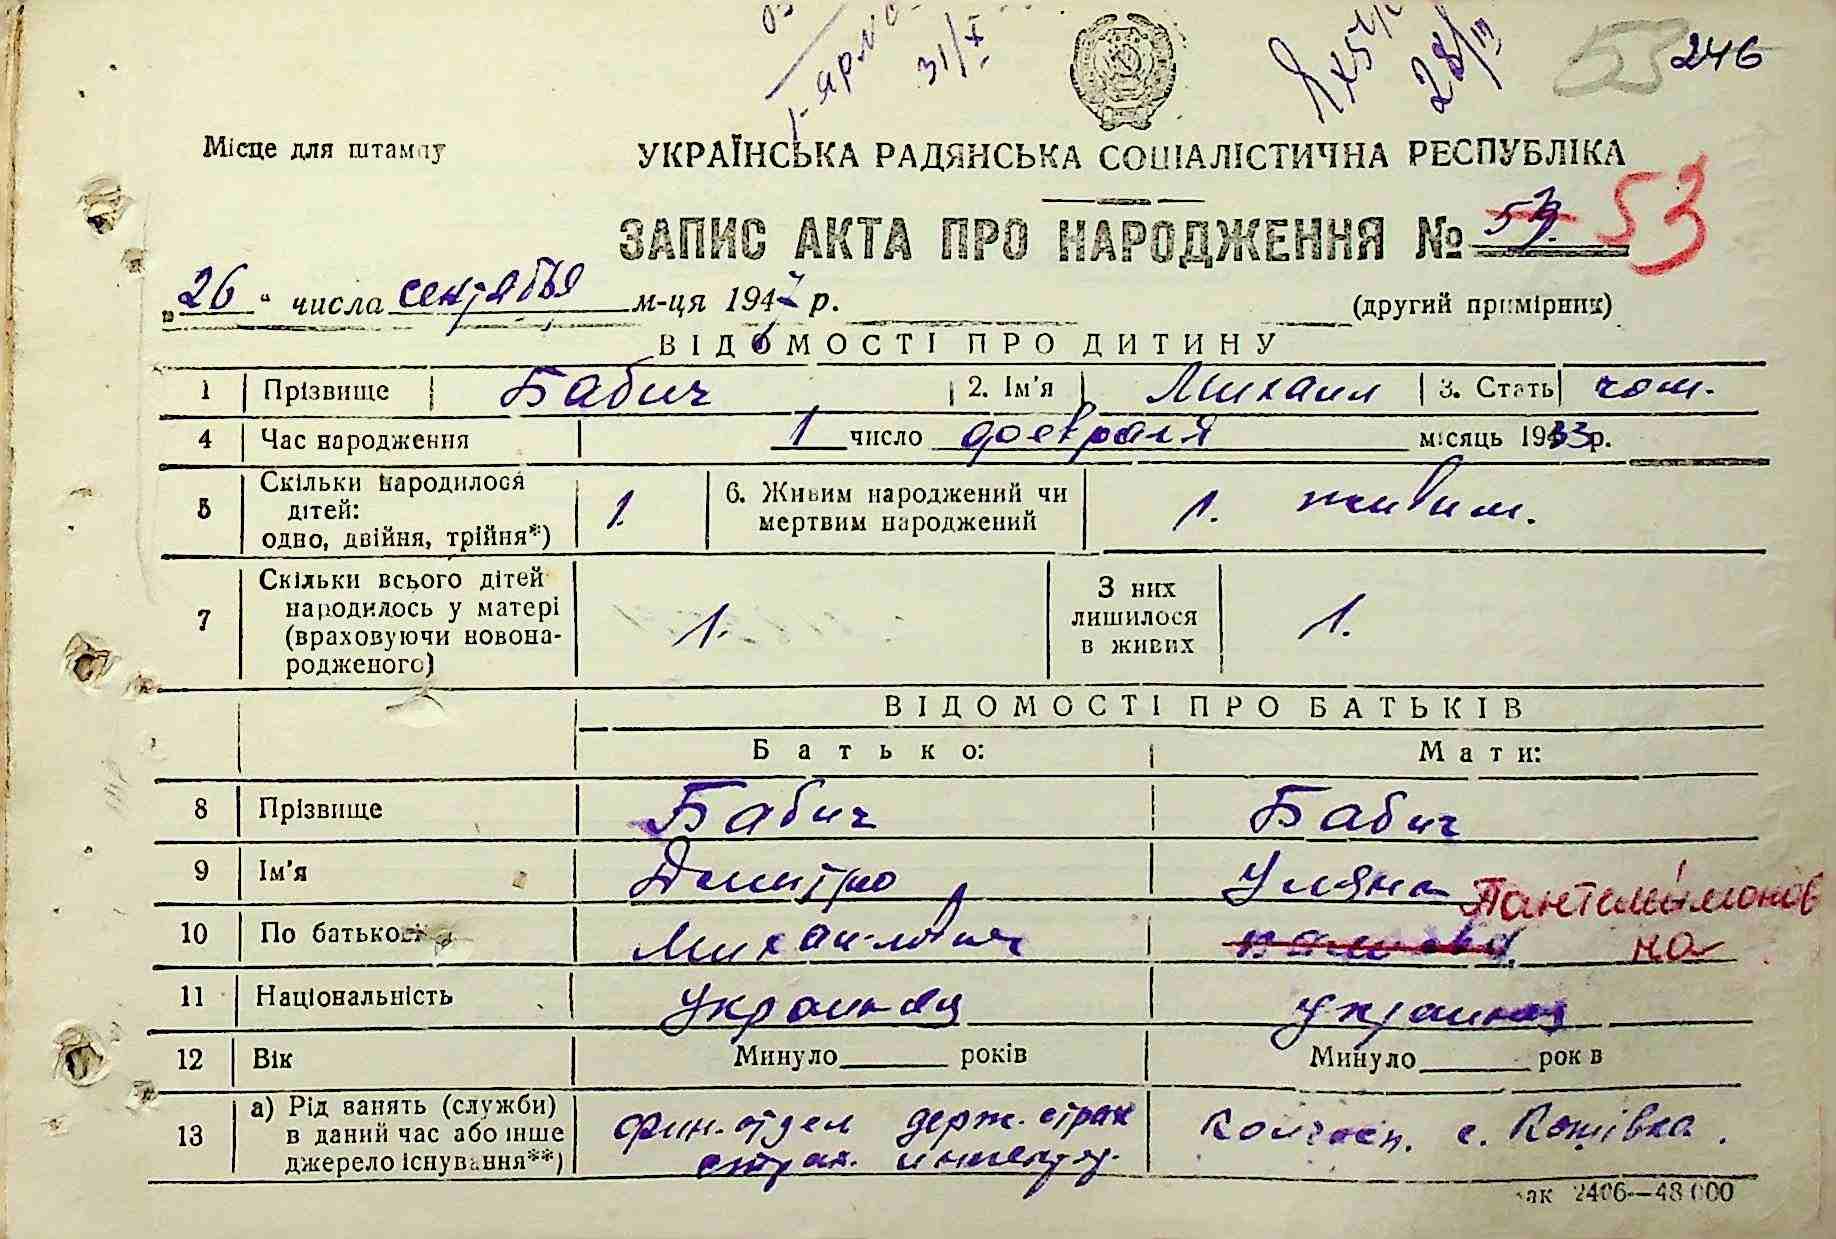 31/X
28/III
53 246
Місце для штампу
УКРАЇНСЬКА РАДЯНСЬКА СОЦІАЛІСТИЧНА РЕСПУБЛІКА
ЗАПИС АКТА ПРО НАРОДЖЕННЯ № 53
„26“ числа сентября м-ця 1947 р.
(другий примірник)
ВІДОМОСТІ ПРО ДИТИНУ
1 Прізвище Бабич 2. Ім'я Михаил 3. Стать чол.
4 Час народження 1 число февраля місяць 1933р.
5 Скільки народилося дітей: одно, двійня, трійня*) 1. 6. Живим народжений чи мертвим народжений 1. живим.
7 Скільки всього дітей народилось у матері (враховуючи новонародженого) 1. З них лишилося в живих 1.
ВІДОМОСТІ ПРО БАТЬКІВ
Батько: Мати:
8 Прізвище Бабич Бабич
9 Ім'я Дмитро Уляна
10 По батькові Михайлович Пантелимоновна
11 Національність украинец украинка
12 Вік Минуло років Минуло років
13 а) Рід занять (служби) в даний час або інше джерело існування**) фин. отдел держ. страх страх. Колгосп. с.
ак 2406—48 000